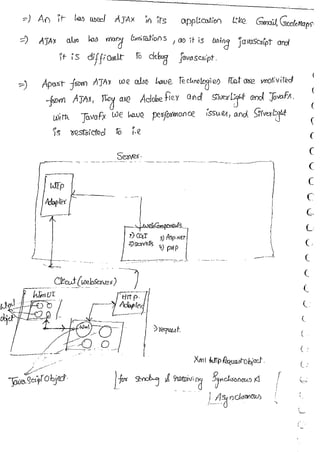 =) An it has used AJAX in its application like Gmail, Googlemaps
=) AJAX also has many limitations, as it is using javascript and
it is difficult to debug javascript.
=) Apart from AJAX we also have Technologies that are motivited
from AJAX, they are Adobe Flex and SilverLight and JavaFx.
with JavaFx we have performance issues, and SilverLight
is restricted to i.e
Server
HTTP
Adapter
webComponents
1) CGI 3) Asp.net
2) Servlets 4) PHP
Client (webserver)
Html UI
HTTP
Adapter
Html
object
Html
) request
Xml Http RequestObject.
JavaScript Object
for sending & Receiving Synchronous &
Asynchronous